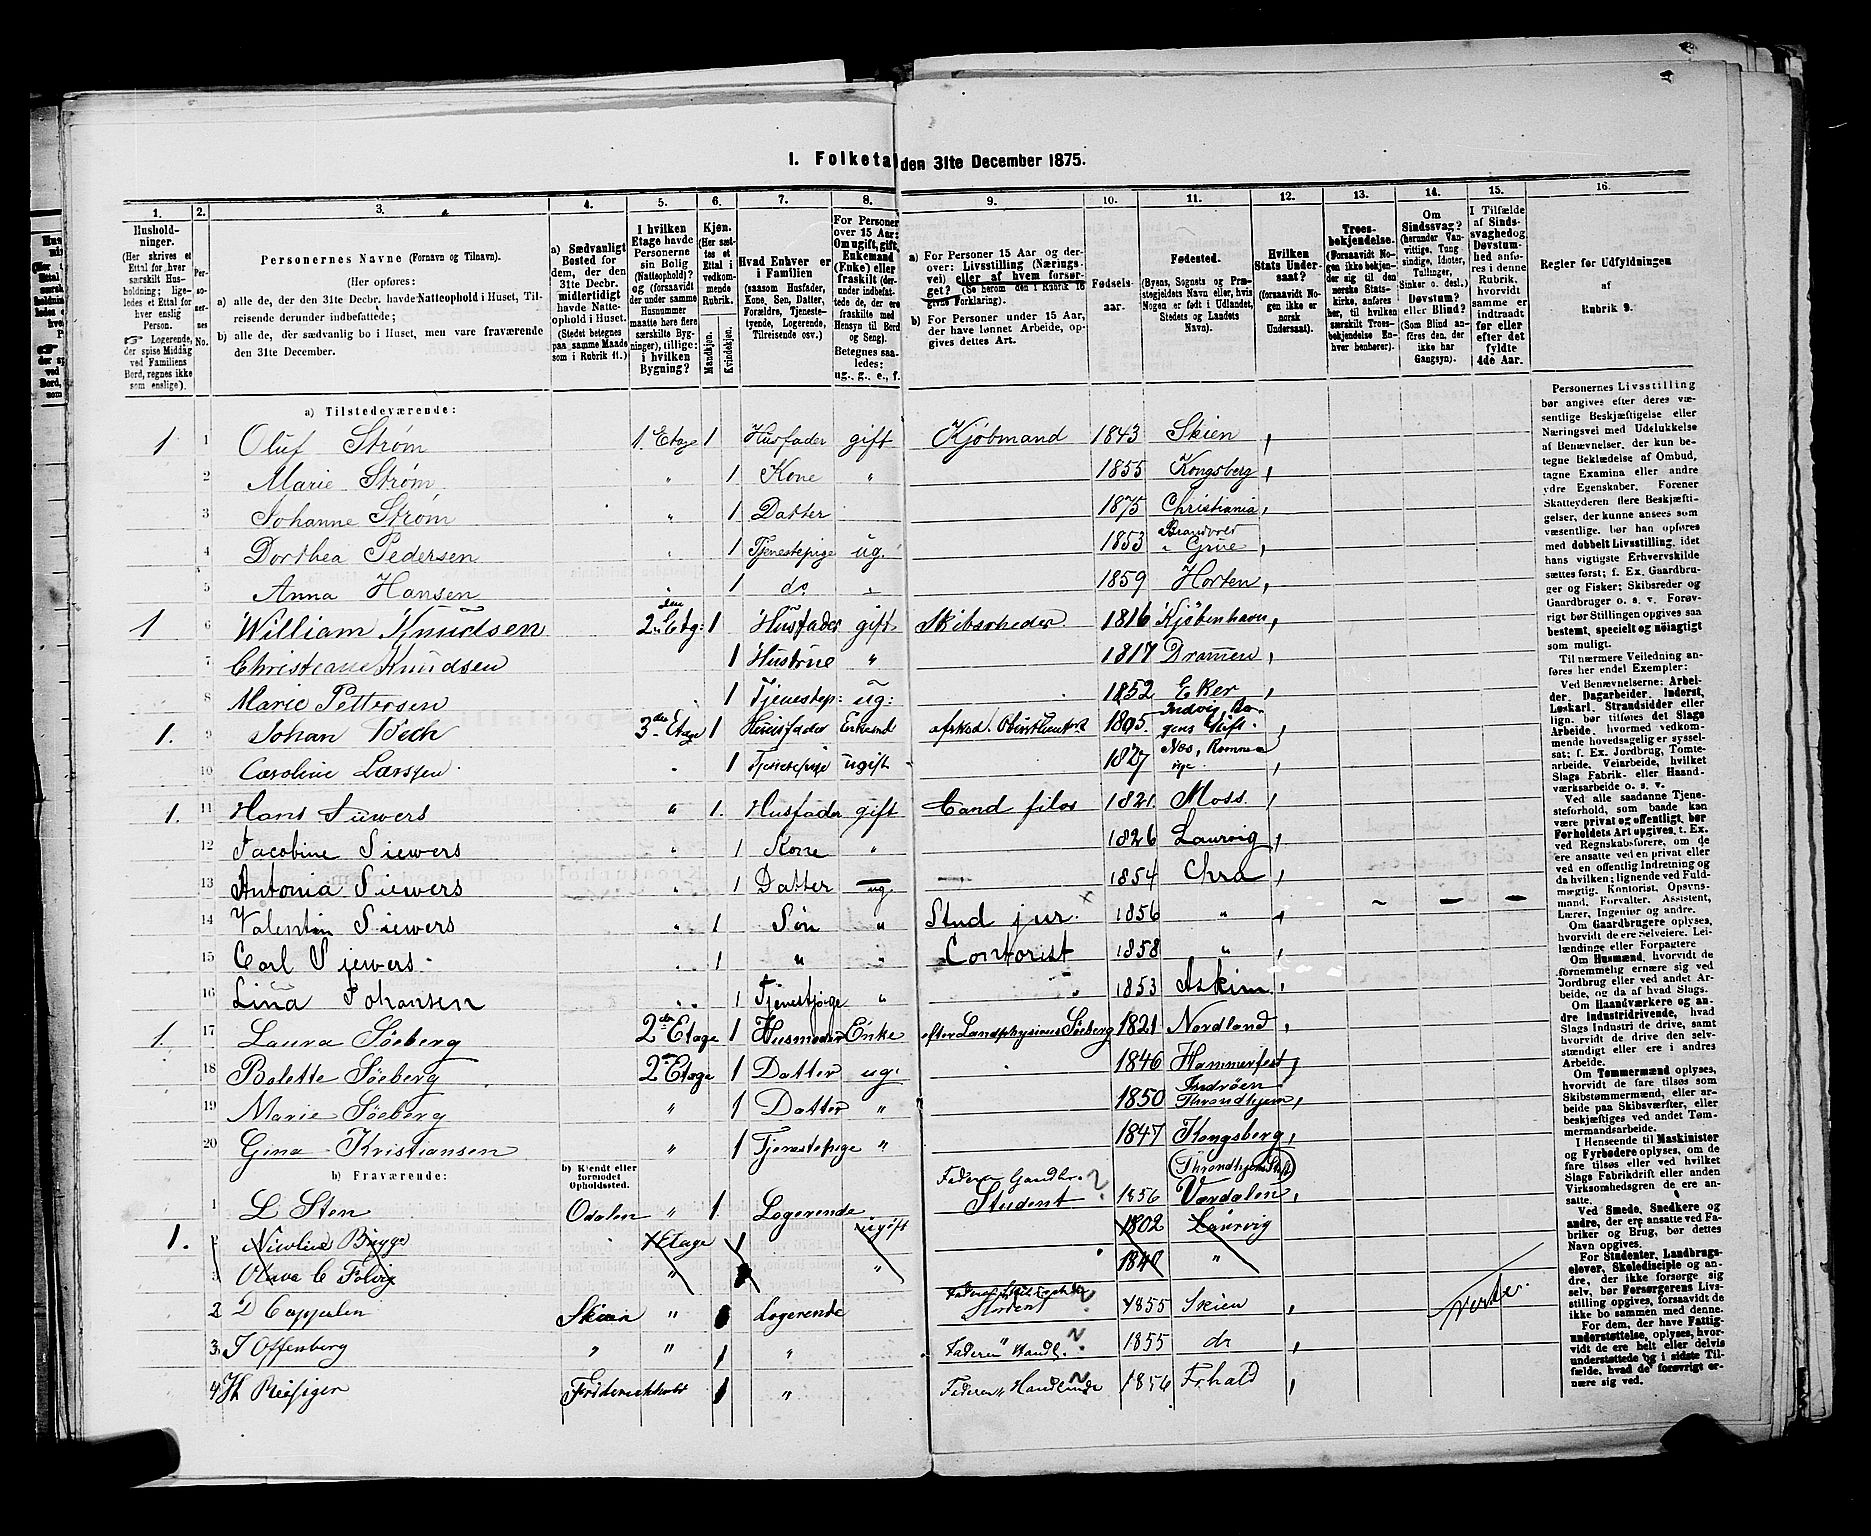 1. Folketal den 31te December 1875.
1. 2. 3. 4. 5. 6. 7. 8. 9. 10. 11. 12. 13. 14. 15. 16.
Hushold-
ninger.
(Her skrives et
Ettal for hver
særskilt Hus-
holdning; lige-
ledes et Ettal for
hver enslig
Person.
☞ Logerende,
der spise Middag
ved Familiens
Bord, regnes ikke
som enslige).
Per-
so-
ner-
nes
No.
Personernes Navne (Fornavn og Tilnavn).
(Her opføres:
a) alle de, der den 31te Decbr. havde Natteophold i Huset, Til-
reisende derunder indbefattede;
b) alle de, der sædvanlig bo i Huset, men vare fraværende
den 31te December.
a) Sædvanligt
Bosted for
dem, der den
31te Decbr.
midlertidigt
havde Natte-
ophold i Huset.
(Stedet betegnes
paa samme Maade
som i Rubrik 11.)
I hvilken
Etage havde
Personerne
sin Bolig
(Natteophold)?
og (forsaavidt
der under samme
Husnummer
maatte høre flere
særskilte Byg-
ninger), tillige:
i hvilken
Bygning?
Kjøn.
(Her sæt-
tes et
Ettal i
vedkom-
mende
Rubrik.
Mandkjøn.
Kvindekjøn.
Hvad Enhver er
i Familien
(saasom Husfader,
Kone, Søn, Datter,
Forældre, Tjeneste-
tyende, Logerende,
Tilreisende osv.)
For Personer
over 15 Aar:
Om ugift, gift,
Enkemand
(Enke) eller
fraskilt (der-
under indbefat-
tede de, der ere
fraskilte med
Hensyn til Bord
og Seng).
Betegnes saa-
ledes:
ug., g., e., f.
a) For Personer 15 Aar og der-
over: Livsstilling (Nærings-
vei) eller af hvem forsør-
get? (Se herom den i Rubrik 16
givne Forklaring).
b) For Personer under 15 Aar,
der have lønnet Arbeide, op-
gives dettes Art.
Fødsels-
aar.
Fødested.
(Byens, Sognets og Præ-
stegjeldets Navn eller, hvis
Nogen er født i Udlandet,
Stedets og Landets
Navn).
Hvilken
Stats Under-
saat?
(forsaavidt No-
gen ikke er
norsk
Undersaat).
Troes-
bekjendelse.
(Forsaavidt No-
gen ikke bekjen-
der sig til den
norske Stats-
kirke, anføres
her, til hvilken
særskilt Troes-
bekjendelse En-
hver henhører).
Om
Sindssvag?
(herunder Van-
vittige, Tung-
sindige, Idioter,
Tullinger,
Sinker o. desl.)
Døvstum?
eller Blind?
(Som Blind an-
føres den, der
ikke har
Gangsyn).
I Tilfælde
af Sinds-
svaghed og
Døvstum-
hed anfø-
res i denne
Rubrik,
hvorvidt
samme er
indtraadt
før eller
efter det
fyldte
4de Aar.
Regler for Udfyldningen
af
Rubrik 9.
a) Tilstedeværende:
1 1 Oluf Strøm 1. Etage 1 Husfader gift Kjøbmand 1843 Skien
2 Marie Strøm " 1 Kone " 1855 Kongsberg
3 Johanne Strøm " 1 Datter 1875 Christiania
4 Dorthea Pedersen " 1 Tjenestepige ug. 1853 Brandvold Grue
5 Anna Hansen " 1 do " 1859 Horten
1 6 William Knudsen 2den Etg: 1 Husfader gift Skibsrheder 1816 Kjøbenhavn
7 Christiane Knudsen 1 Hustrue " 1817 Dramen
8 Marie Pettersen 1 Tjenestep: ug: 1852 Eker
1. 9 Johan Bech 3die Etage 1 Huusfader Enkemd 1805
10 Caroline Larssen " 1 Tjenestepige ugift 1827
1. 11 Hans Siewers " 1. Husfader gift Cand filos 1821 Moss
12 Jacobine Siewers " 1 Kone " 1826 Laurvig
13 Antonia Siewers " 1 Datter ug. 1854 Chra
14 Valentin Siewers " 1 Søn " Stud jur. × 1856 "
15 Carl Siewers " 1 " " Contorist 1858 "
16 Lina Johansen " 1 Tjenestpige " 1853 Askim
1. 17 Laura Søeberg 2den Etage 1 Husmoder Enke efter Landphysicus Søeberg 1821 Nordland
18 Bolette Søeberg 2den Etage 1 Datter ug. 1846 Hammerfest
19 Marie Søeberg " 1 Datter " 1850 Inderøen Throndhjem
20 Gina Kristiansen " 1 Tjenestepige " 1847 Kongsberg
b) Fraværende:
b) Kjendt eller
formodet
Opholdssted.
1 L Sten Odalen " 1. Logerende Faderen Gaardbr. Student ? 1856 Throndhjems Stift Værdalen
1. 2 Brygge 1 Etage 1 ugift 1802 Laurvig
3 " " 1840 "
2 D Cappelen Skien " 1 Logerende Student 1855 Skien
3 J Offenberg " " 1 " Faderen Handl. ? 1855 do
4 Th Frederikshald 1 " Faderen Handlende 1856 Frhald
Personernes Livsstilling
bør angives efter deres væ-
sentlige Beskjæftigelse eller
Næringsvei med Udelukkelse
af Benævnelser, der kun be-
tegne Beklædelse af Ombud,
tagne Examina eller andre
ydre Egenskaber. Forener
Skatteyderen flere Beskjæfti-
gelser, der kunne ansees som
væsentlige, bør han opføres
med dobbelt Livsstilling, idet
hans vigtigste Erhvervskilde
sættes først; f. Ex. Gaardbru-
ger og Fisker; Skibsreder og
Gaardbruger o. s. v. Forøv-
rigt bør Stillingen opgives saa
bestemt, specielt og nøiagtigt
som muligt.
Til nærmere Veiledning an-
føres her endel Exempler:
Ved Benævnelserne: Arbei-
der, Dagarbeider, Inderst,
Løskarl, Strandsidder eller
lign. bør tilføies det Slags
Arbeide, hvormed vedkom-
mende hovedsagelig er syssel-
sat; f. Ex. Jordbrug, Tomte-
arbeide, Veiarbeide, hvilket
Slags Fabrik- eller Haand-
værksarbeide o. s. v.
Ved alle saadanne Tjene-
steforhold, som baade kan
være privat og offentligt, bør
Forholdets Art opgives, t. Ex.
ved Regnskabsførere, om de
ere ansatte ved en privat eller
ved en offentlig Indretning og
da hvilken; lignende ved Fuld-
mægtig, Kontorist, Opsyns-
mand, Forvalter, Assistent,
Lærer, Ingeniør og andre.
Om Gaardbrugere oplyses,
hvorvidt de ere Selveiere, Lei-
lændinge eller Forpagtere
Om Husmænd, hvorvidt de
fornemmelig ernære sig ved
Jordbrug eller ved andet Ar-
beide, og da af hvad Slags.
Om Haandværkere og an-
dre Industridrivende, hvad
Slags Industri de drive, samt
hvorvidt de drive den selv-
stændigt eller ere i andres
Arbeide.
Om Tømmermænd oplyses,
hvorvidt de fare tilsøs som
Skibstømmermænd, eller ar-
beide paa Skibsværfter, eller
beskjæftiges ved andet Tøm-
mermandsarbeide.
I Henseende til Maskinister
og Fyrbødere oplyses, om de
fare tilsøs eller ved hvilket
Slags Fabrikdrift eller anden
Virksomhedsgren de ere an-
satte.
Ved Smede, Snedkere og
andre, der ere ansatte ved Fa-
briker og Brug, bør dettes
Navn opgives.
For Studenter, Landbrugs-
elever, Skoledisciple og an-
dre, der ikke forsørge sig
selv, bør Forsørgerens Livs-
stilling opgives, forsaavidt de
ikke bo sammen med denne.
For dem, der have Fattig-
understøttelse, oplyses, hvor-
vidt de ere helt eller delvis
understøttede og i sidste Til-
fælde, hvad de forøvrigt er-
nære sig ved.